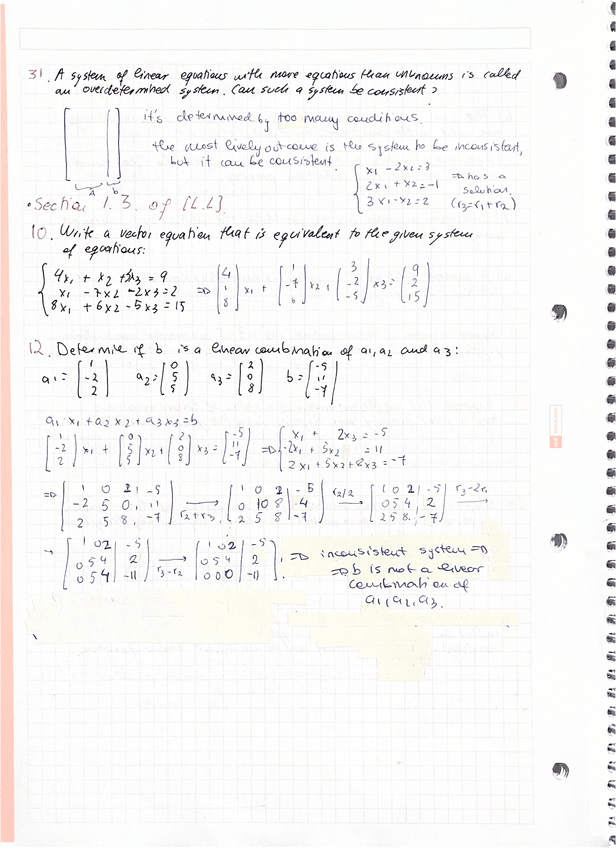 31. A system of linear equations with more equations than unknowns is called
an overdetermined system. Can such a system be consistent?
it's determined by too many conditions.
the most lively outcome is the system to be inconsistent,
but it can be consistent.
{ x1 - 2x2 = 3
2x1 + x2 = -1
3x1 - x2 = 2
=> has a
solution.
(r3=r1+r2)
A b
• Section 1.3. of [L.L].
10. Write a vector equation that is equivalent to the given system
of equations:
{ 4x1 + x2 + 3x3 = 9
x1 - 7x2 - 2x3 = 2
8x1 + 6x2 - 5x3 = 15
=> [4 1 8] x1 + [1 -7 6] x2 + [3 -2 -5] x3 = [9 2 15]
12. Determie if b is a linear combination of a1, a2 and a3:
a1 = [1 -2 2] a2 = [0 5 5] a3 = [2 0 8] b = [-5 11 -7]
a1 x1 + a2 x2 + a3 x3 = b
[1 -2 2] x1 + [0 5 5] x2 + [2 0 8] x3 = [-5 11 -7] => { x1 + 2x3 = -5
-2x1 + 5x2 = 11
2x1 + 5x2 + 8x3 = -7
=> [1 0 2 | -5
-2 5 0 | 11
2 5 8 | -7] r2+r3 → [1 0 2 | -5
0 10 8 | 4
2 5 8 | -7] r2/2 → [1 0 2 | -5
0 5 4 | 2
2 5 8 | -7] r3-2r1 →
→ [1 0 2 | -5
0 5 4 | 2
0 5 4 | -11] r3-r2 → [1 0 2 | -5
0 5 4 | 2
0 0 0 | -11] => inconsistent system =>
=> b is not a linear
combination of
a1, a2, a3.